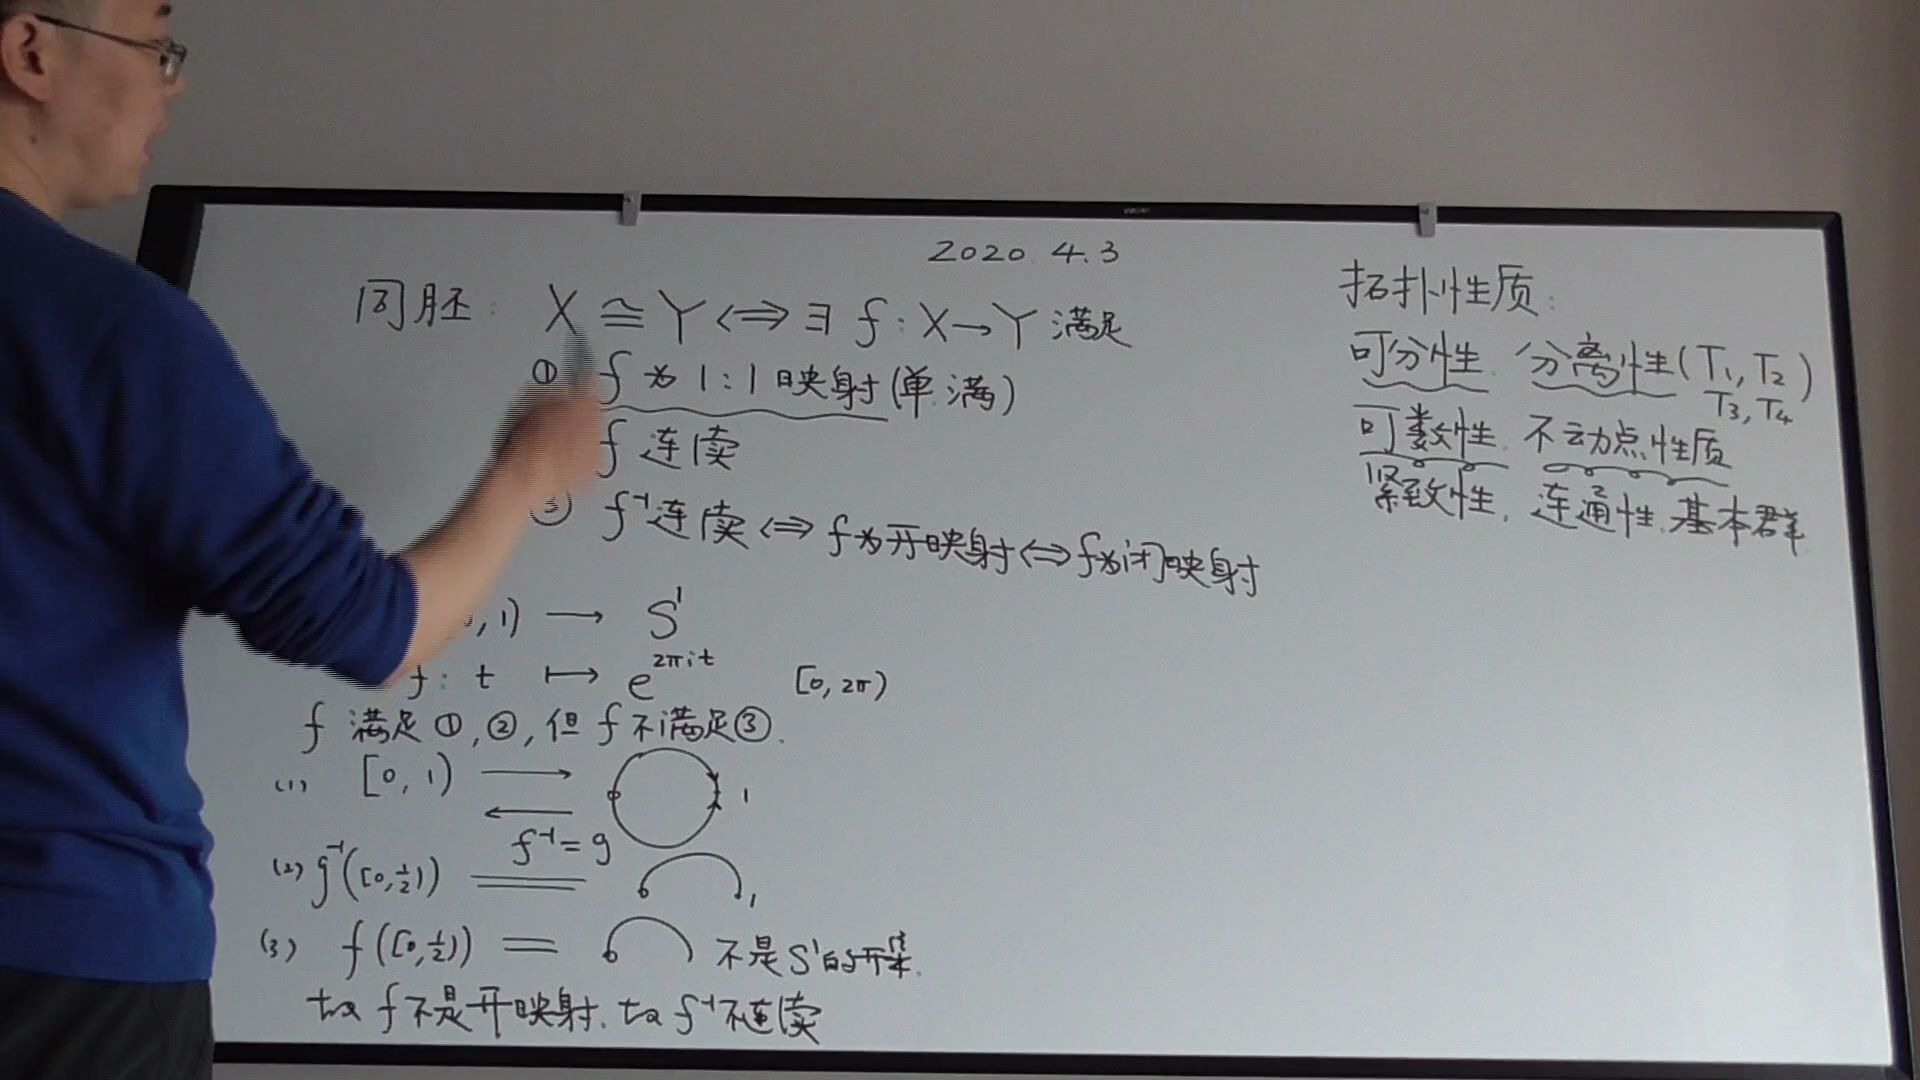 2020 4.3
同胚: X ≅ Y ⟺ ∃ f: X → Y 满足
① f 为 1:1 映射(单.满)
f 连续
③ f⁻¹连续 ⟺ f为开映射 ⟺ f为闭映射
,1) ⟶ S¹
f: t ⟼ e^{2πit} [0, 2π)
f 满足①,②,但 f 不满足③.
(1) [0, 1) ⟶ 1
⟵
f⁻¹=g
(2) g⁻¹([0,½)) = 1
(3) f([0,½)) = 不是S¹的开集.
故 f不是开映射. 故 f⁻¹不连续
拓扑性质:
可分性. 分离性(T₁,T₂
T₃,T₄)
可数性. 不动点性质
紧致性. 连通性. 基本群